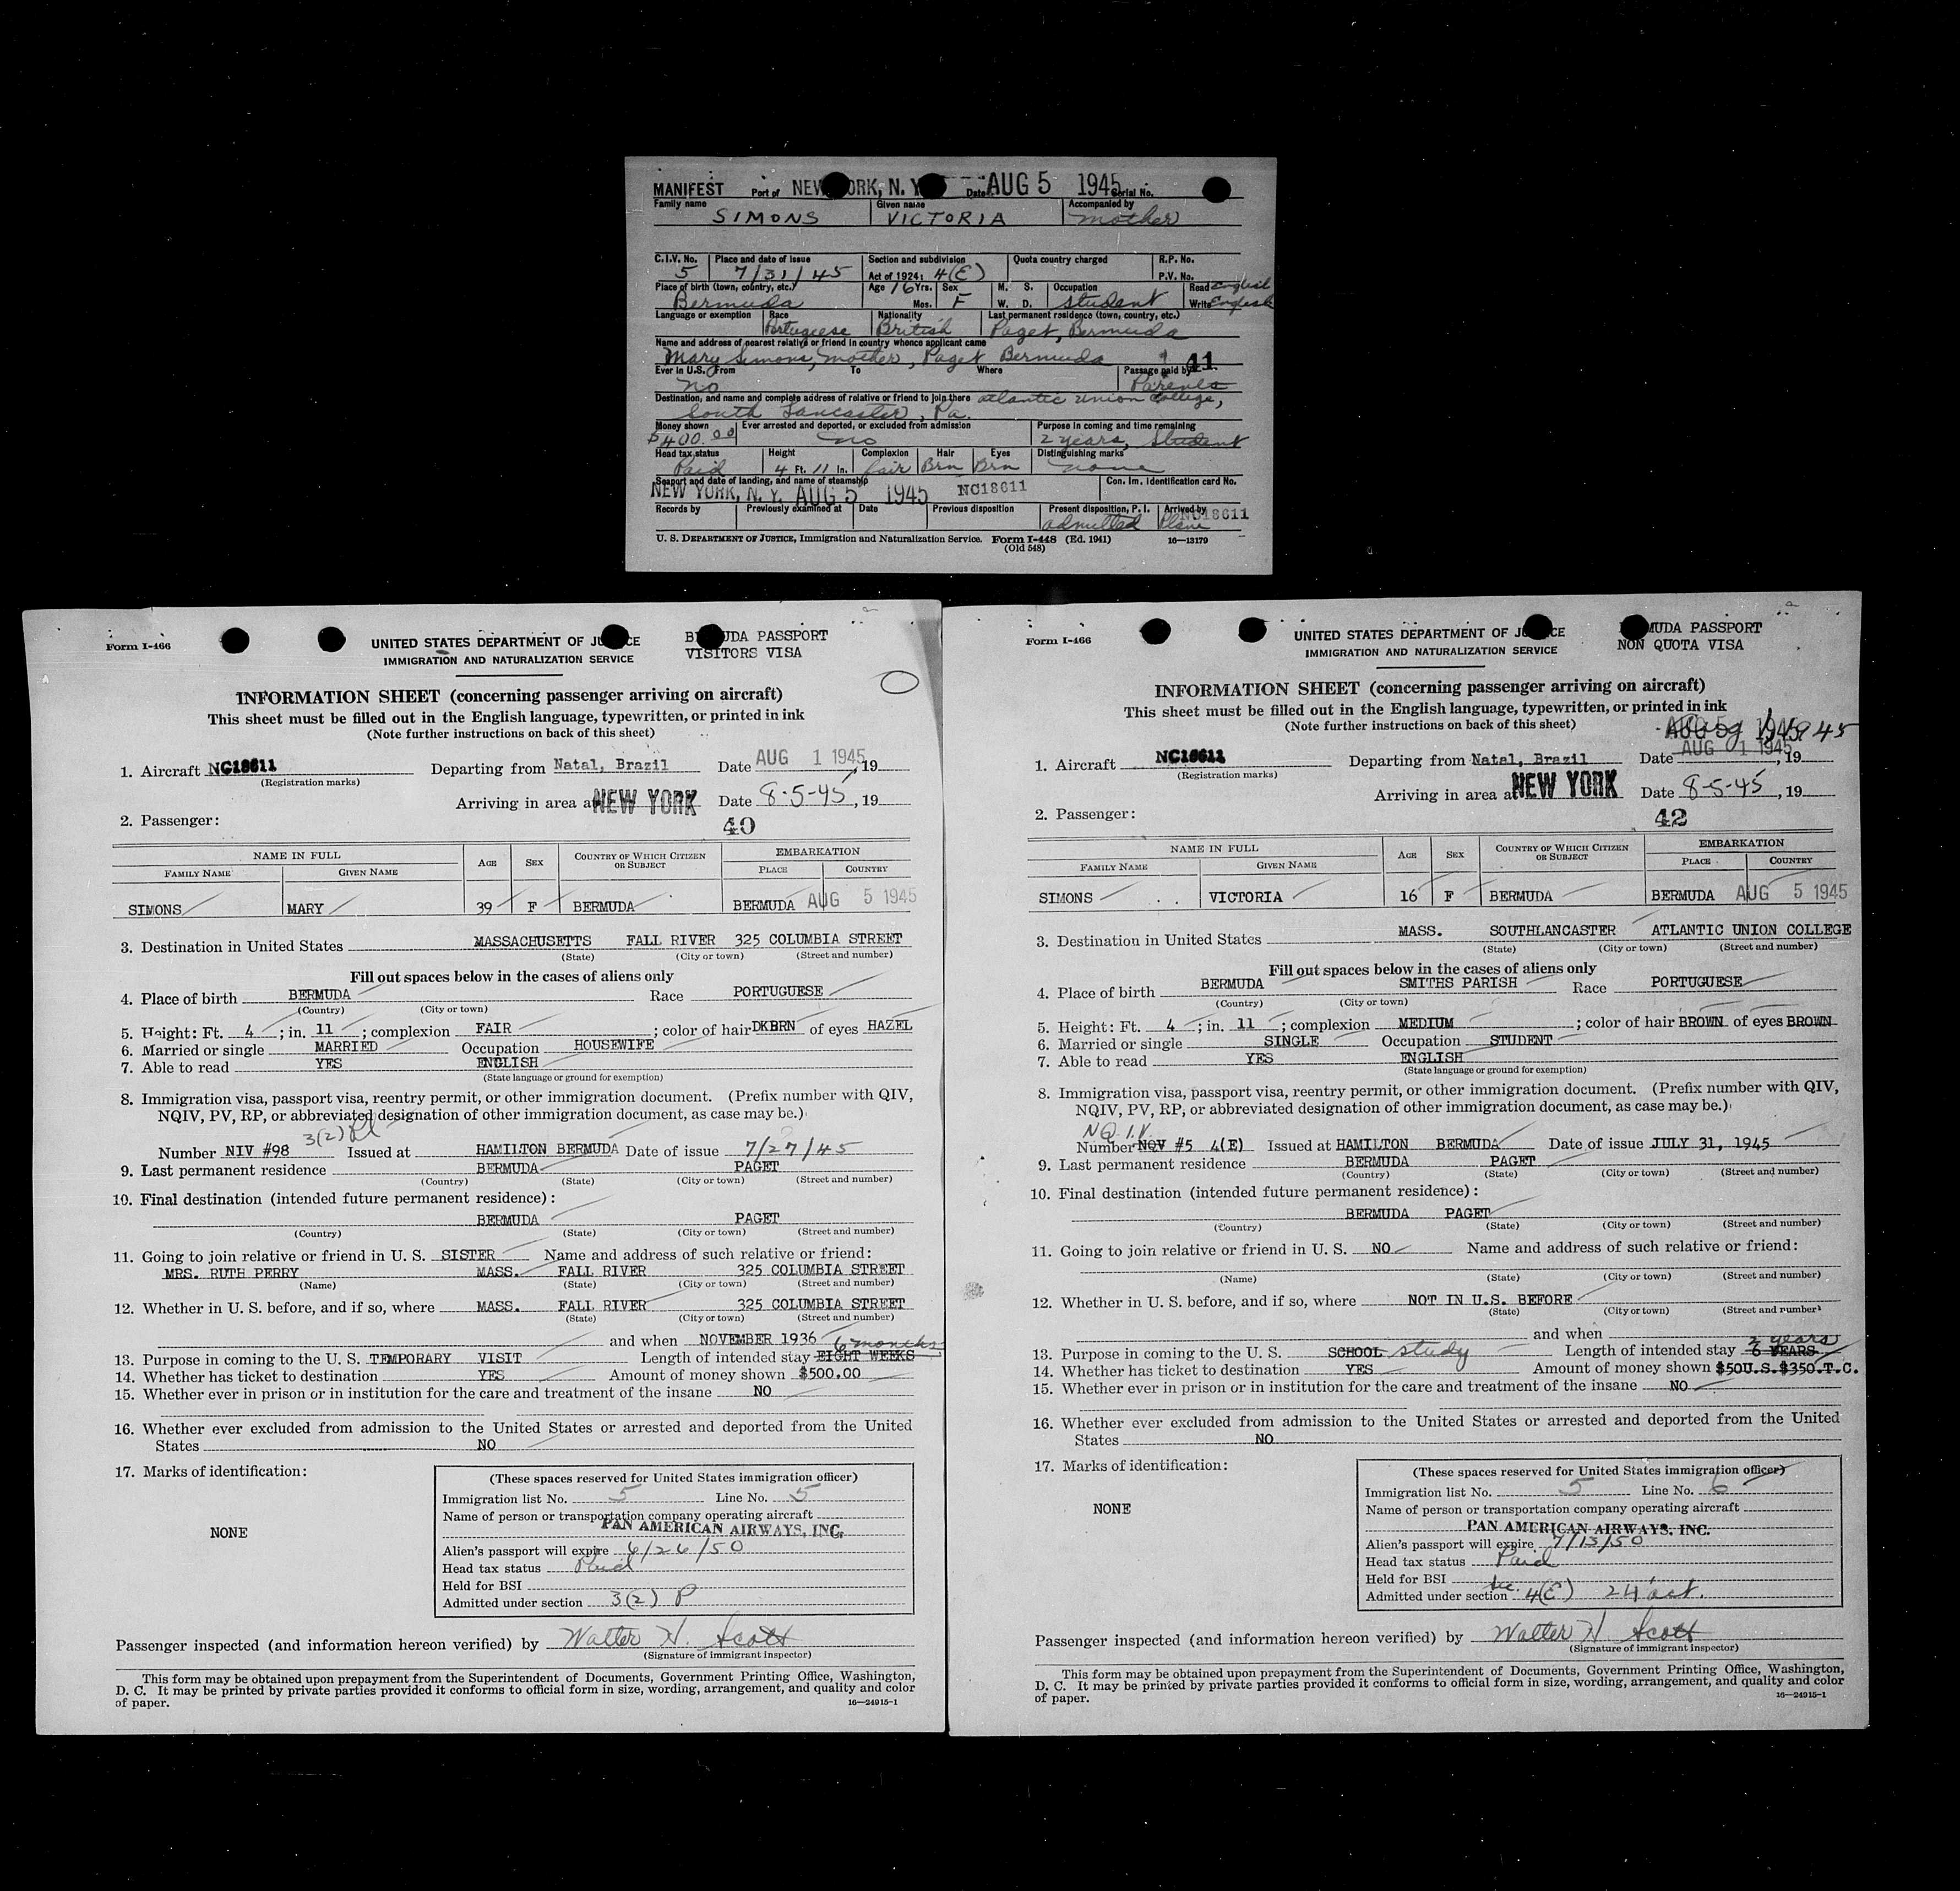 MANIFEST Port of NEW YORK, N. Y. Date AUG 5 1945 Serial No.
Family name Given name Accompanied by
SIMONS VICTORIA Mother
C.I.V. No. Place and date of issue Section and subdivision Quota country charged R.P. No.
5 7/31/45 Act of 1924: 4(E) P.V. No.
Place of birth (town, country, etc.) Age 16 Yrs. Sex M. S. Occupation Read English
Bermuda Mos. F W. D. Student Write English
Language or exemption Race Nationality Last permanent residence (town, country, etc.)
Portuguese British Paget, Bermuda
Name and address of nearest relative or friend in country whence applicant came
Mary Simons, Mother, Paget Bermuda 41
Ever in U.S. From To Where Passage paid by
No Parents
Destination, and name and complete address of relative or friend to join there Atlantic Union College,
South Lancaster, Pa.
Money shown Ever arrested and deported, or excluded from admission Purpose in coming and time remaining
$400.00 No 2 years, Student
Head tax status Height Complexion Hair Eyes Distinguishing marks
Paid 4 Ft. 11 In. Fair Brn Brn None
Seaport and date of landing, and name of steamship Con. Im. Identification card No.
NEW YORK, N. Y. AUG 5 1945 NC18611
Records by Previously examined at Date Previous disposition Present disposition, P. I. Arrived by NC18611
Admitted Plane
U. S. DEPARTMENT OF JUSTICE, Immigration and Naturalization Service. Form I-448 (Ed. 1941) 16—13179
(Old 548)
Form I-466
UNITED STATES DEPARTMENT OF JUSTICE
IMMIGRATION AND NATURALIZATION SERVICE
BERMUDA PASSPORT
VISITORS VISA
INFORMATION SHEET (concerning passenger arriving on aircraft)
This sheet must be filled out in the English language, typewritten, or printed in ink
(Note further instructions on back of this sheet)
1. Aircraft NC18611 Departing from Natal, Brazil Date AUG 1 1945, 19
(Registration marks)
Arriving in area at NEW YORK Date 8-5-45, 19
2. Passenger: 40
NAME IN FULL AGE SEX COUNTRY OF WHICH CITIZEN OR SUBJECT EMBARKATION
FAMILY NAME GIVEN NAME PLACE COUNTRY
SIMONS MARY 39 F BERMUDA BERMUDA AUG 5 1945
3. Destination in United States MASSACHUSETTS FALL RIVER 325 COLUMBIA STREET
(State) (City or town) (Street and number)
Fill out spaces below in the cases of aliens only
4. Place of birth BERMUDA Race PORTUGUESE
(Country) (City or town)
5. Height: Ft. 4; in. 11; complexion FAIR; color of hair DKBRN of eyes HAZEL
6. Married or single MARRIED Occupation HOUSEWIFE
7. Able to read YES ENGLISH
(State language or ground for exemption)
8. Immigration visa, passport visa, reentry permit, or other immigration document. (Prefix number with QIV,
NQIV, PV, RP, or abbreviated designation of other immigration document, as case may be.)
3(2)
Number NIV #98 Issued at HAMILTON BERMUDA Date of issue 7/27/45
9. Last permanent residence BERMUDA PAGET
(Country) (State) (City or town) (Street and number)
10. Final destination (intended future permanent residence):
BERMUDA PAGET
(Country) (State) (City or town) (Street and number)
11. Going to join relative or friend in U. S. SISTER Name and address of such relative or friend:
MRS. RUTH PERRY MASS. FALL RIVER 325 COLUMBIA STREET
(Name) (State) (City or town) (Street and number)
12. Whether in U. S. before, and if so, where MASS. FALL RIVER 325 COLUMBIA STREET
(State) (City or town) (Street and number)
and when NOVEMBER 1936
6 months
13. Purpose in coming to the U. S. TEMPORARY VISIT Length of intended stay EIGHT WEEKS
14. Whether has ticket to destination YES Amount of money shown $500.00
15. Whether ever in prison or in institution for the care and treatment of the insane NO
16. Whether ever excluded from admission to the United States or arrested and deported from the United
States NO
17. Marks of identification:
NONE
(These spaces reserved for United States immigration officer)
Immigration list No. 5 Line No. 5
Name of person or transportation company operating aircraft
PAN AMERICAN AIRWAYS, INC.
Alien's passport will expire 6/26/50
Head tax status Paid
Held for BSI
Admitted under section 3(2) P
Passenger inspected (and information hereon verified) by Walter H. Scott
(Signature of immigrant inspector)
This form may be obtained upon prepayment from the Superintendent of Documents, Government Printing Office, Washington,
D. C. It may be printed by private parties provided it conforms to official form in size, wording, arrangement, and quality and color
of paper. 16—24915-1
Form I-466
UNITED STATES DEPARTMENT OF JUSTICE
IMMIGRATION AND NATURALIZATION SERVICE
BERMUDA PASSPORT
NON QUOTA VISA
INFORMATION SHEET (concerning passenger arriving on aircraft)
This sheet must be filled out in the English language, typewritten, or printed in ink
(Note further instructions on back of this sheet)
AUG 5 1945
1. Aircraft NC18611 Departing from Natal, Brazil Date AUG 1 1945, 19
(Registration marks)
Arriving in area at NEW YORK Date 8-5-45, 19
2. Passenger: 42
NAME IN FULL AGE SEX COUNTRY OF WHICH CITIZEN OR SUBJECT EMBARKATION
FAMILY NAME GIVEN NAME PLACE COUNTRY
SIMONS VICTORIA 16 F BERMUDA BERMUDA AUG 5 1945
3. Destination in United States MASS. SOUTHLANCASTER ATLANTIC UNION COLLEGE
(State) (City or town) (Street and number)
Fill out spaces below in the cases of aliens only
4. Place of birth BERMUDA SMITHS PARISH Race PORTUGUESE
(Country) (City or town)
5. Height: Ft. 4; in. 11; complexion MEDIUM; color of hair BROWN of eyes BROWN
6. Married or single SINGLE Occupation STUDENT
7. Able to read YES ENGLISH
(State language or ground for exemption)
8. Immigration visa, passport visa, reentry permit, or other immigration document. (Prefix number with QIV,
NQIV, PV, RP, or abbreviated designation of other immigration document, as case may be.)
NQ.I.V.
Number NQV #5 4(E) Issued at HAMILTON BERMUDA Date of issue JULY 31, 1945
9. Last permanent residence BERMUDA PAGET
(Country) (State) (City or town) (Street and number)
10. Final destination (intended future permanent residence):
BERMUDA PAGET
(Country) (State) (City or town) (Street and number)
11. Going to join relative or friend in U. S. NO Name and address of such relative or friend:
(Name) (State) (City or town) (Street and number)
12. Whether in U. S. before, and if so, where NOT IN U.S. BEFORE
(State) (City or town) (Street and number)
and when
2 years
13. Purpose in coming to the U. S. SCHOOL study Length of intended stay 6 YEARS
14. Whether has ticket to destination YES Amount of money shown $50U.S.$350.T.C.
15. Whether ever in prison or in institution for the care and treatment of the insane NO
16. Whether ever excluded from admission to the United States or arrested and deported from the United
States NO
17. Marks of identification:
NONE
(These spaces reserved for United States immigration officer)
Immigration list No. 5 Line No. 6
Name of person or transportation company operating aircraft
PAN AMERICAN AIRWAYS, INC.
Alien's passport will expire 7/13/50
Head tax status Paid
Held for BSI
Admitted under section Sec. 4(E) 24 act.
Passenger inspected (and information hereon verified) by Walter H Scott
(Signature of immigrant inspector)
This form may be obtained upon prepayment from the Superintendent of Documents, Government Printing Office, Washington,
D. C. It may be printed by private parties provided it conforms to official form in size, wording, arrangement, and quality and color
of paper. 16—24915-1